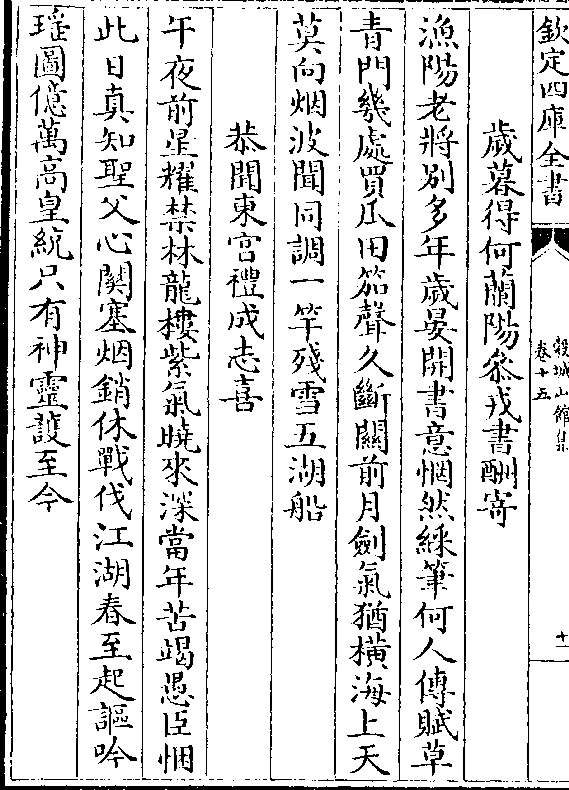 欽定四庫全書
穀城山館集
卷十五
十一
歲暮得何蘭陽叅戎書酬寄
漁陽老將別多年歲晏開書意惘然綵筆何人傳賦草
青門幾處買瓜田笳聲久斷關前月劍氣猶橫海上天
莫向烟波聞同調一竿殘雪五湖船
恭聞東宮禮成志喜
午夜前星耀禁林龍樓紫氣曉來深當年苦竭愚臣悃
此日真知聖父心關塞烟銷休戰伐江湖春至起謳吟
瑤圖億萬高皇統只有神靈護至今